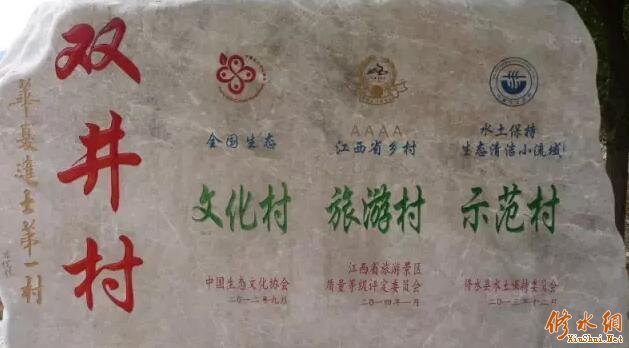 双井村
華夏進士第一村
全国生态
文化村
中国生态文化协会
二〇一二年九月
AAAA
江西省乡村
旅游村
江西省旅游景区
质量等级评定委员会
二〇一四年一月
水土保持
生态清洁小流域
示范村
修水县水土保持委员会
二〇一三年十二月
修水網
XiuShui.Net